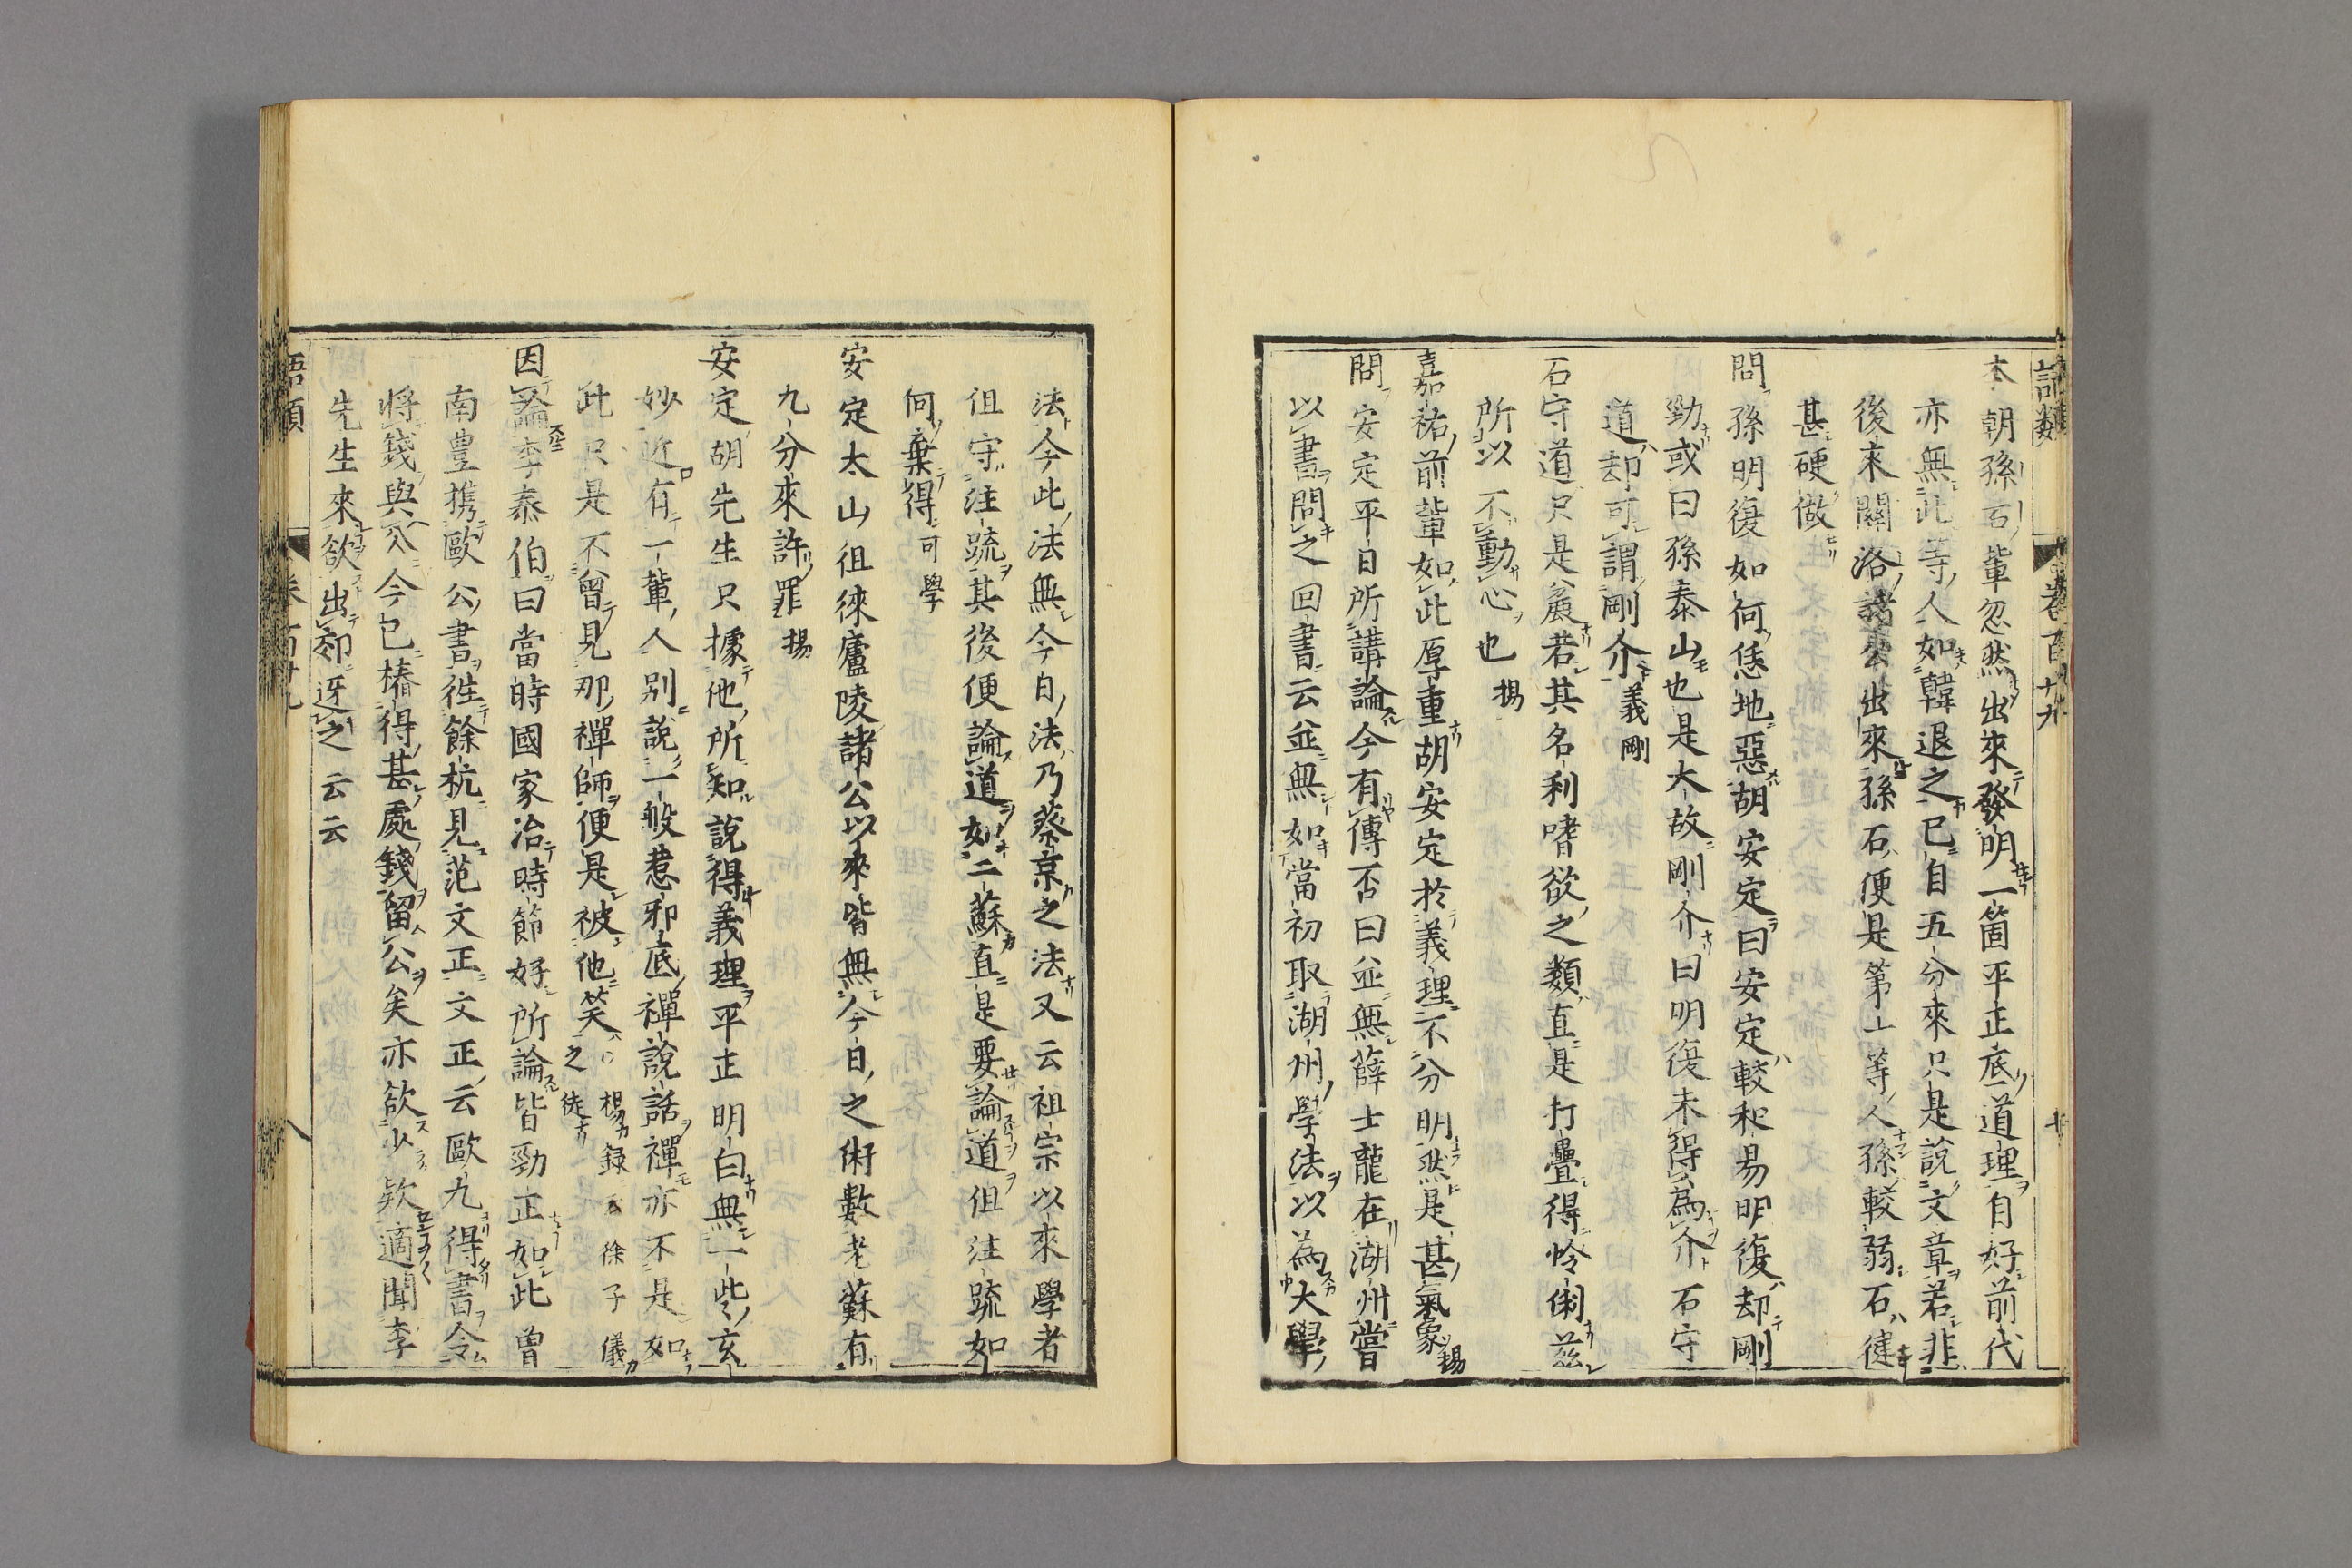 語類 卷百廿九
本朝孫石輩忽然出來發明一箇平正底道理自好前代
亦無此等人如韓退之已自五分來只是說文章若非
後來關洛諸公出來孫石便是第一等人孫較弱石健
甚硬做
問孫明復如何恁地惡胡安定曰安定較和易明復却剛
勁或曰孫泰山也是大故剛介曰明復未得為介石守
道却可謂剛介義剛
石守道只是粗若其名利嗜欲之類直是打疊得怜悧茲
所以不動心也揚
嘉祐前輩如此厚重胡安定於義理不分明然是甚氣象揚
問安定平日所講論今有傳否曰並無薛士龍在湖州嘗
以書問之回書云並無如當初取湖州學法以為太學
法今此法無今日法乃蔡京之法又云祖宗以來學者
但守注疏其後便論道如二蘇直是要論道但注疏如
何棄得可學
安定太山徂徠廬陵諸公以來皆無今日之術數老蘇有
九分來許罪揚
安定胡先生只據他所知說得義理平正明白無一些玄
妙近有一輩人別說一般惹邪底禪說話禪亦不是如
此只是不曾見那禪師便是被他笑揚錄云徐子儀之徒
因論李泰伯曰當時國家治時節好所論皆勁正如此曾
南豊携歐公書往餘杭見范文正文正云歐九得書令
將錢與公今已椿得甚處錢留公矣亦欲少欵適聞李
先生來欲出郊迓之云云
語類 卷百廿九 八